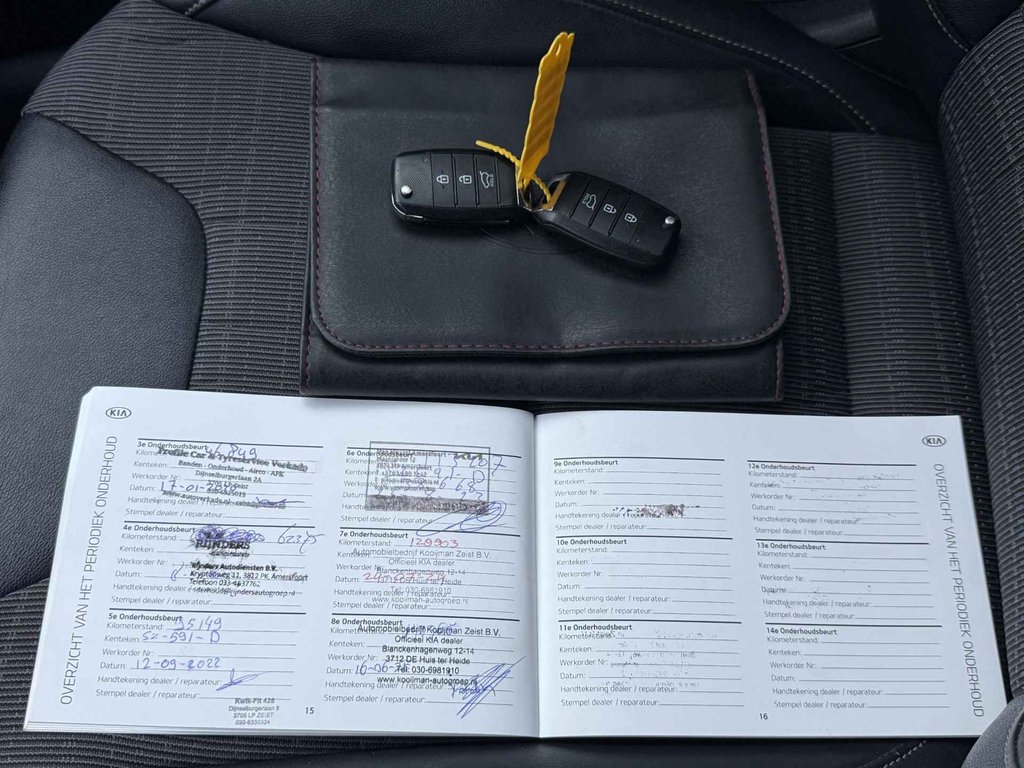 HOLD
HOLD
KIA
OVERZICHT VAN HET PERIODIEK ONDERHOUD
3e Onderhoudsbeurt
Profile Car & Tyreservice Verkade
Banden - Onderhoud - Airco - APK
Dijnselburgerlaan 2A
3705 LP Zeist
Kenteken:
Werkorder Nr:
Datum:
www.autoverkade.nl
Handtekening dealer / reparateur:
Stempel dealer / reparateur:
4e Onderhoudsbeurt
Kilometerstand:
RIJNDERS
Kenteken:
Werkorder Nr:
Rijnders Autodiensten B.V.
Kryptonweg 11, 3812 PK, Amersfoort
Telefoon 033-4637762
Datum:
Handtekening dealer
Stempel dealer / reparateur:
5e Onderhoudsbeurt
Kilometerstand: 95149
Kenteken: SZ-591-D
Werkorder Nr:
Datum: 12-09-2022
Handtekening dealer / reparateur:
Stempel dealer / reparateur:
Kwik-Fit 428
Dijnselburgerlaan 8
3705 LP ZEIST
030-6330324
15
6e Onderhoudsbeurt
KIA
Kenteken:
Werkorder Nr:
Datum:
Handtekening dealer / reparateur:
Stempel dealer / reparateur:
7e Onderhoudsbeurt
Kilometerstand: 129903
Automobielbedrijf Kooijman Zeist B.V.
Kenteken:
Officieel KIA dealer
Werkorder Nr:
Blanckenhagenweg 12-14
Datum:
Huis ter Heide
030-6981910
Handtekening dealer
www.kooijman-autogroep.nl
Stempel dealer / reparateur:
8e Onderhoudsbeurt
Automobielbedrijf Kooijman Zeist B.V.
Officieel KIA dealer
Kenteken:
Blanckenhagenweg 12-14
Werkorder Nr:
3712 DE Huis ter Heide
Datum:
Tel. 030-6981910
www.kooijman-autogroep.nl
Handtekening dealer
Stempel dealer / reparateur:
KIA
OVERZICHT VAN HET PERIODIEK ONDERHOUD
9e Onderhoudsbeurt
Kilometerstand:
Kenteken:
Werkorder Nr:
Datum:
Handtekening dealer / reparateur:
Stempel dealer / reparateur:
10e Onderhoudsbeurt
Kilometerstand:
Kenteken:
Werkorder Nr:
Datum:
Handtekening dealer / reparateur:
Stempel dealer / reparateur:
11e Onderhoudsbeurt
Kilometerstand:
Kenteken:
Werkorder Nr:
Datum:
Handtekening dealer / reparateur:
Stempel dealer / reparateur:
16
12e Onderhoudsbeurt
Kilometerstand:
Kenteken:
Werkorder Nr:
Datum:
Handtekening dealer / reparateur:
Stempel dealer / reparateur:
13e Onderhoudsbeurt
Kilometerstand:
Kenteken:
Werkorder Nr:
Datum:
Handtekening dealer / reparateur:
Stempel dealer / reparateur:
14e Onderhoudsbeurt
Kilometerstand:
Kenteken:
Werkorder Nr:
Datum:
Handtekening dealer / reparateur:
Stempel dealer / reparateur: